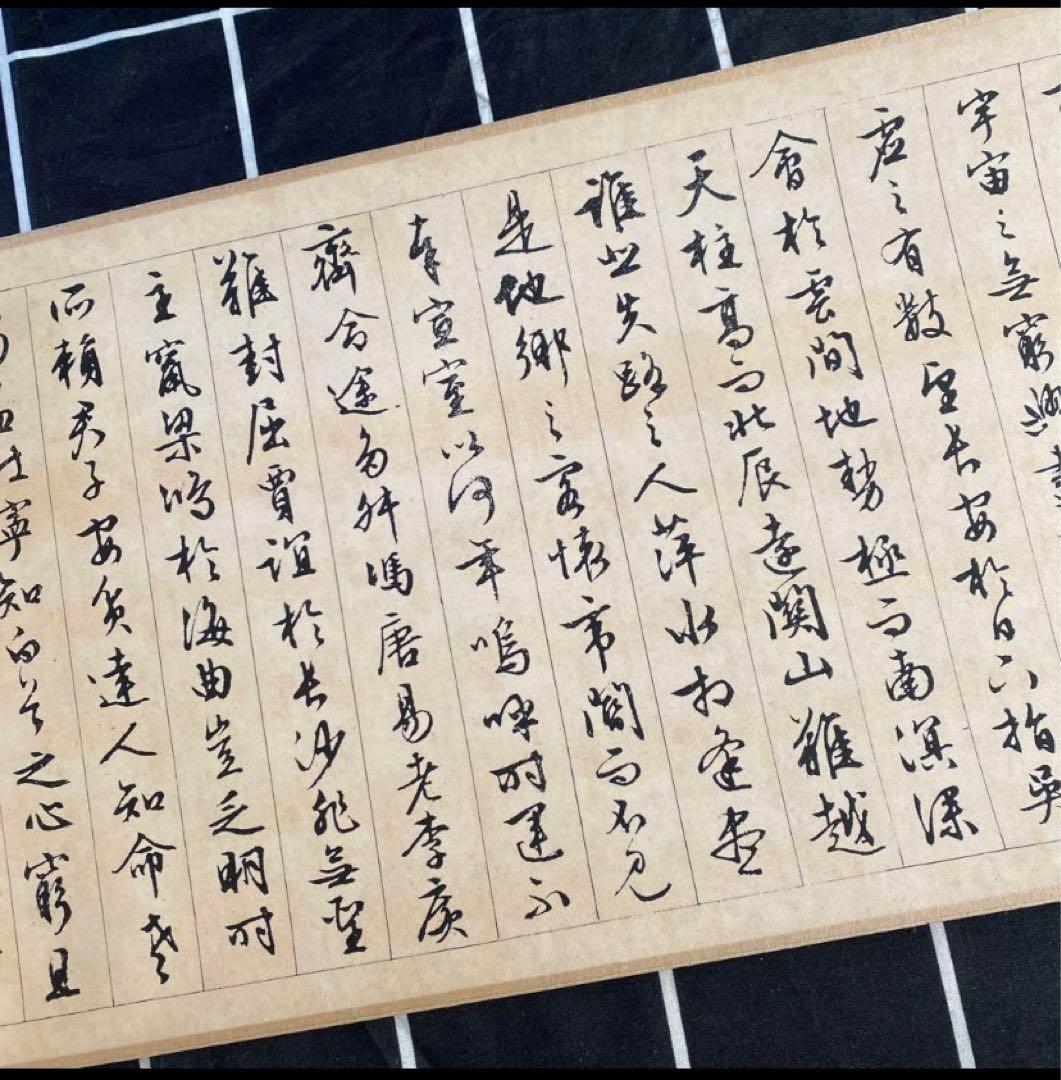 宇宙之無窮興盡
虛之有數望長安於日下指吳
會於雲間地勢極而南溟深
天柱高而北辰遠關山難越
誰悲失路之人萍水相逢盡
是他鄉之客懷帝閽而不見
奉宣室以何年嗚呼時運不
齊命途多舛馮唐易老李廣
難封屈賈誼於長沙非無聖
主竄梁鴻於海曲豈乏明時
所賴君子安貧達人知命老
壯寧知白首之心窮且